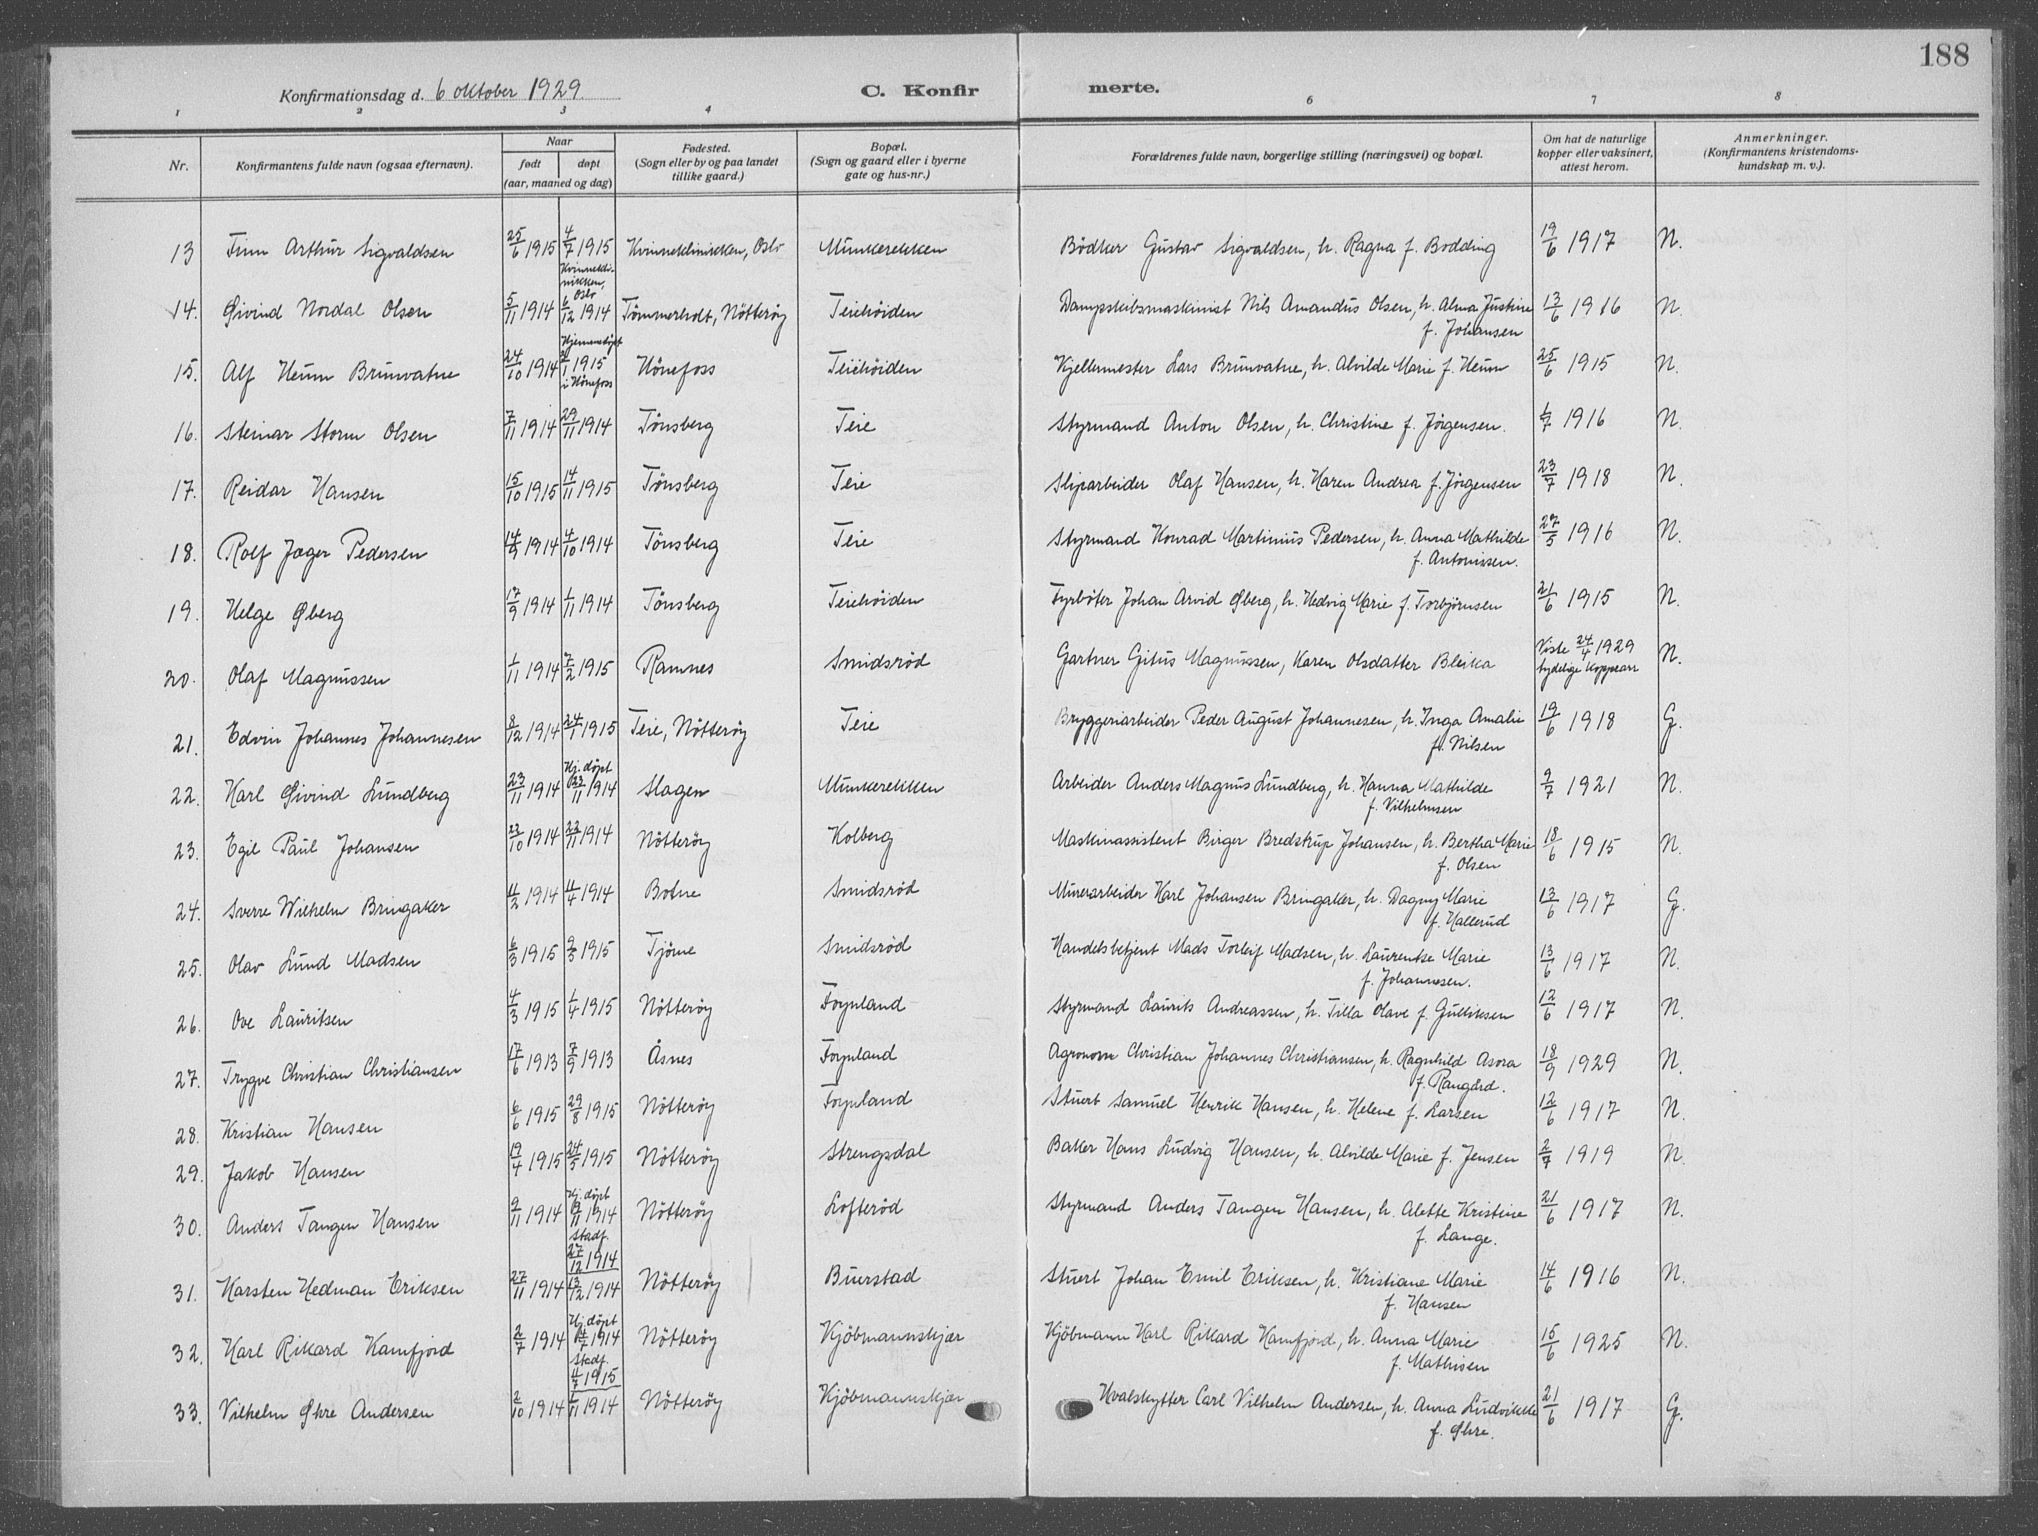 188
Konfirmationsdag d. 6 oktober 1929
C. Konfirmerte.
1 2 3 4 6 7 8
Nr. | Konfirmantens fulde navn (ogsaa efternavn). | Naar født døpt (aar, maaned og dag) | Fødested. (Sogn eller by og paa landet tillike gaard.) | Bopæl. (Sogn og gaard eller i byerne gate og hus-nr.) | Forældrenes fulde navn, borgerlige stilling (næringsvei) og bopæl. | Om hat de naturlige kopper eller vaksinert, attest herom. | Anmerkninger. (Konfirmantens kristendoms-kundskap m. v.).
13 Finn Arthur Sigvaldsen 25/6 1915 4/7 1915 Kvinneklinikken, Oslo Kvinneklinikken, Oslo Munkerekken Bødker Gustav Sigvaldsen, h. Ragna f. Bodding 19/6 1917 N.
14. Øivind Nordal Olsen 5/11 1914 6/12 1914 Tømmerholt, Nøtterøy Teiehøiden Dampskibsmaskinist Nils Amandus Olsen, h. Alma Justine f. Johansen 13/6 1916 N.
15. Alf Heum Brunvatne 24/10 1914 Hjemmedøpt 2/1 1915 i Hønefoss Hønefoss Teiehøiden Kjellermester Lars Brunvatne, h. Alvilde Marie f. Heum 25/6 1915 N.
16. Steinar Storm Olsen 7/11 1914 29/11 1914 Tønsberg Teie Styrmand Anton Olsen, h. Christine f. Jørgensen. 1/7 1916 N.
17. Reidar Hansen 15/10 1915 14/11 1915 Tønsberg Teie Sliparbeider Olaf Hansen, h. Karen Andrea f. Jørgensen 23/7 1918 N.
18. Rolf Jæger Pedersen 14/9 1914 4/10 1914 Tønsberg Teie Styrmand Konrad Martinius Pedersen, h. Anna Mathilde f. Antonissen. 27/5 1916 N.
19. Helge Øberg 17/9 1914 1/11 1914 Tønsberg Teiehøiden Fyrbøter Johan Arvid Øberg, h. Hedvig Marie f. Torbjørnsen 21/6 1915 N.
20. Olaf Magnussen 1/11 1914 7/2 1915 Ramnes Smidsrød Gartner Gitus Magnussen, Karen Olsdatter Bleika Viste 24/4 1929 tydelige koppearr N.
21. Edvin Johannes Johannesen 8/12 1914 24/1 1915 Teie, Nøtterøy Teie Bryggeriarbeider Peder August Johannesen, h. Inga Amalie f. Nilsen 19/6 1918 G.
22. Karl Øivind Lundberg 23/11 1914 Hj. døpt 23/11 1914 Slagen Munkerekken Arbeider Anders Magnus Lundberg, h. Hanna Mathilde f. Vilhelmsen 9/7 1921 N.
23. Egil Paul Johansen 23/10 1914 22/11 1914 Nøtterøy Kolberg Maskinassistent Birger Bredstrup Johansen, h. Bertha Marie f. Olsen 18/6 1915 N.
24. Sverre Wilhelm Bringaker 11/2 1914 11/4 1914 Botne Smidsrød Murerarbeider Karl Johansen Bringaker, h. Dagny Marie f. Hallerud 13/6 1917 G.
25. Olav Lund Madsen 6/3 1915 9/5 1915 Tjøme Smidsrød Handelsbetjent Mads Torleif Madsen, h. Laurentse Marie f. Johannesen. 13/6 1917 N.
26. Ove Lauritsen 4/3 1915 1/4 1915 Nøtterøy Føynland Styrmand Laurits Andreassen, h. Tilla Olave f. Gulliksen 12/6 1917 N.
27. Trygve Christian Christiansen 17/6 1913 7/9 1913 Åsnes Føynland Agronom Christian Johannes Christiansen, h. Ragnhild Asora f. Rangård. 18/9 1929 N.
28. Kristian Hansen 6/6 1915 29/8 1915 Nøtterøy Føynland Stuert Samuel Henrik Hansen, h. Helene f. Larsen 12/6 1917 N.
29. Jakob Hansen 19/4 1915 24/5 1915 Nøtterøy Strengsdal Baker Hans Ludvig Hansen, h. Alvilde Marie f. Jensen 2/7 1919 N.
30. Anders Tangen Hansen 9/11 1914 Hj. døpt 12/11 1914 Stadf. 27/12 1914 Nøtterøy Lofterød Styrmand Anders Tangen Hansen, h. Alette Kristine f. Lange. 21/6 1917 N.
31. Karsten Hedman Eriksen 27/11 1914 13/12 1914 Nøtterøy Buerstad Stuert Johan Emil Eriksen, h. Kristiane Marie f. Hansen 14/6 1916 N.
32. Karl Rikard Kamfjord 2/7 1914 Hj. døpt 1914 Stadf. 4/7 1915 Nøtterøy Kjøbmannskjær Kjøbmann Karl Rikard Kamfjord, h. Anna Marie f. Mathisen 15/6 1925 N.
33. Vilhelm Øhre Andersen 2/10 1914 1/11 1914 Nøtterøy Kjøbmannskjær Hvalskytter Carl Vilhelm Andersen, h. Anna Ludvikke f. Øhre. 21/6 1917 G.